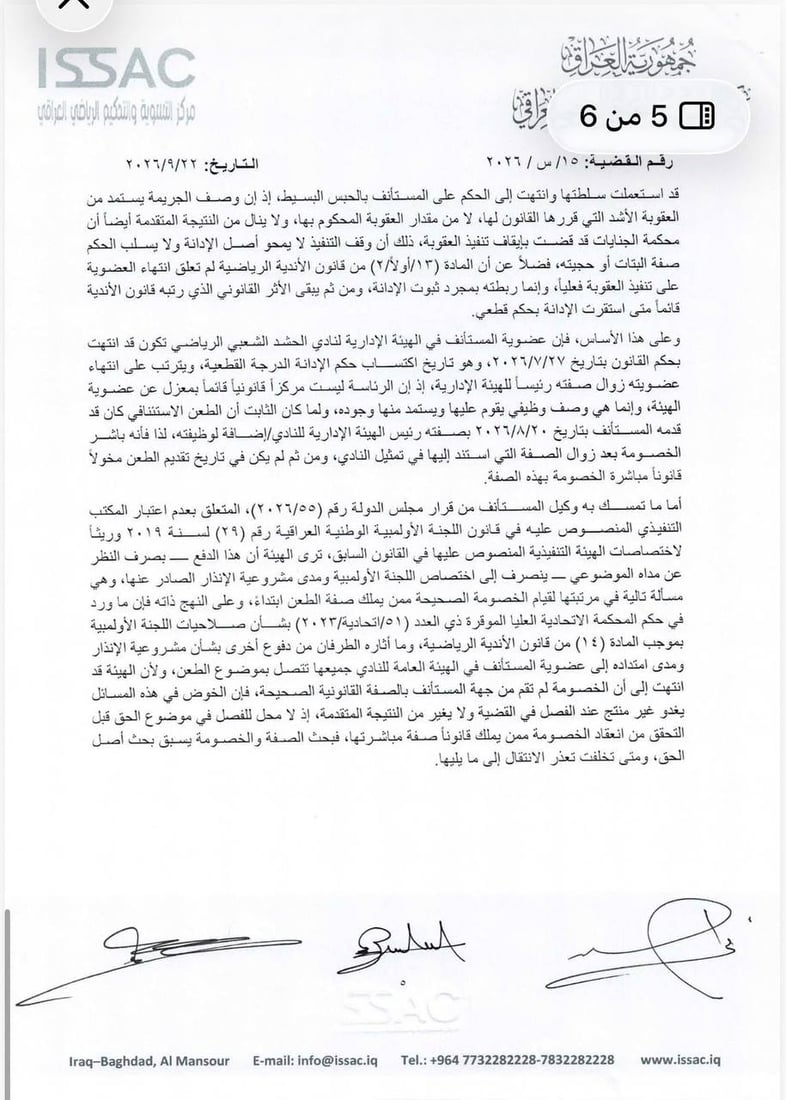 ISSAC
مركز التسوية والتحكيم الرياضي العراقي
جمهورية العراق
5 من 6
رقم القضية: ١٥/ س / ٢٠٢٦
التاريخ: ٢٠٢٦/٩/٢٢
قد استعملت سلطتها وانتهت إلى الحكم على المستأنف بالحبس البسيط، إذ إن وصف الجريمة يستمد من
العقوبة الأشد التي قررها القانون لها، لا من مقدار العقوبة المحكوم بها، ولا ينال من النتيجة المتقدمة أيضاً أن
محكمة الجنايات قد قضت بإيقاف تنفيذ العقوبة، ذلك أن وقف التنفيذ لا يمحو أصل الإدانة ولا يسلب الحكم
صفة البتات أو حجيته، فضلاً عن أن المادة (١٣/أولاً/٢) من قانون الأندية الرياضية لم تعلق انتهاء العضوية
على تنفيذ العقوبة فعلياً، وإنما ربطته بمجرد ثبوت الإدانة، ومن ثم يبقى الأثر القانوني الذي رتبه قانون الأندية
قائماً متى استقرت الإدانة بحكم قطعي.
وعلى هذا الأساس، فإن عضوية المستأنف في الهيئة الإدارية لنادي الحشد الشعبي الرياضي تكون قد انتهت
بحكم القانون بتاريخ ٢٠٢٦/٧/٢٧، وهو تاريخ اكتساب حكم الإدانة الدرجة القطعية، ويترتب على انتهاء
عضويته زوال صفته رئيساً للهيئة الإدارية، إذ إن الرئاسة ليست مركزاً قانونياً قائماً بمعزل عن عضوية
الهيئة، وإنما هي وصف وظيفي يقوم عليها ويستمد منها وجوده، ولما كان الثابت أن الطعن الاستئنافي كان قد
قدمه المستأنف بتاريخ ٢٠٢٦/٨/٢٠ بصفته رئيس الهيئة الإدارية للنادي/إضافة لوظيفته، لذا فأنه باشر
الخصومة بعد زوال الصفة التي استند إليها في تمثيل النادي، ومن ثم لم يكن في تاريخ تقديم الطعن مخولاً
قانوناً مباشرة الخصومة بهذه الصفة.
أما ما تمسك به وكيل المستأنف من قرار مجلس الدولة رقم (٢٠٢٦/٥٥)، المتعلق بعدم اعتبار المكتب
التنفيذي المنصوص عليه في قانون اللجنة الأولمبية الوطنية العراقية رقم (٢٩) لسنة ٢٠١٩ وريثاً
لاختصاصات الهيئة التنفيذية المنصوص عليها في القانون السابق، ترى الهيئة أن هذا الدفع ــ بصرف النظر
عن مداه الموضوعي ــ ينصرف إلى اختصاص اللجنة الأولمبية ومدى مشروعية الإنذار الصادر عنها، وهي
مسألة تالية في مرتبتها لقيام الخصومة الصحيحة ممن يملك صفة الطعن ابتداءً، وعلى النهج ذاته فإن ما ورد
في حكم المحكمة الاتحادية العليا الموقرة ذي العدد (٥١/اتحادية/٢٠٢٣) بشأن صلاحيات اللجنة الأولمبية
بموجب المادة (١٤) من قانون الأندية الرياضية، وما أثاره الطرفان من دفوع أخرى بشأن مشروعية الإنذار
ومدى امتداده إلى عضوية المستأنف في الهيئة العامة للنادي جميعها تتصل بموضوع الطعن، ولأن الهيئة قد
انتهت إلى أن الخصومة لم تقم من جهة المستأنف بالصفة القانونية الصحيحة، فإن الخوض في هذه المسائل
يغدو غير منتج عند الفصل في القضية ولا يغير من النتيجة المتقدمة، إذ لا محل للفصل في موضوع الحق قبل
التحقق من انعقاد الخصومة ممن يملك قانوناً صفة مباشرتها، فبحث الصفة والخصومة يسبق بحث أصل
الحق، ومتى تخلفت تعذر الانتقال إلى ما يليها.
Iraq–Baghdad, Al Mansour E-mail: info@issac.iq Tel.: +964 7732282228-7832282228 www.issac.iq